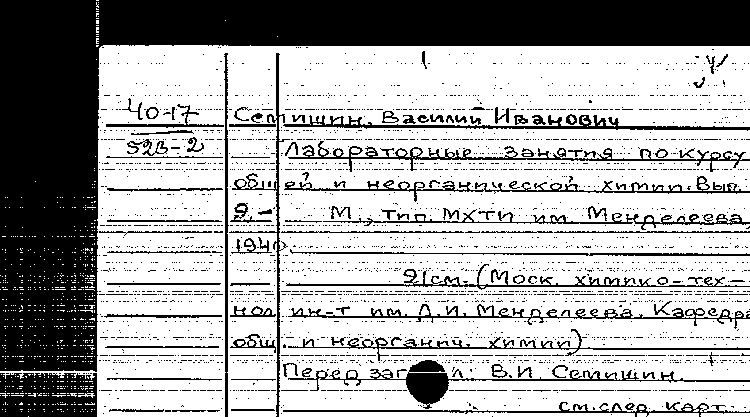 40-17
523-2
Семишин, Василий Иванович
Лабораторные занятия по курсу
общей и неорганической химии. Вып.
2 - М., тип. МХТИ им. Менделеева,
1940.
21см. (Моск. химико-тех-
нол. ин-т им. Д.И. Менделеева. Кафедра
общ. и неорганич. химии)
Перед заг л: В.И. Семишин.
см. след. карт.